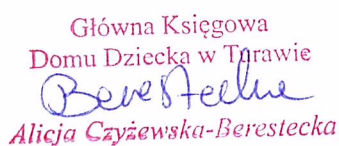 Główna Księgowa
Domu Dziecka w Turawie
Berestecka
Alicja Czyżewska-Berestecka